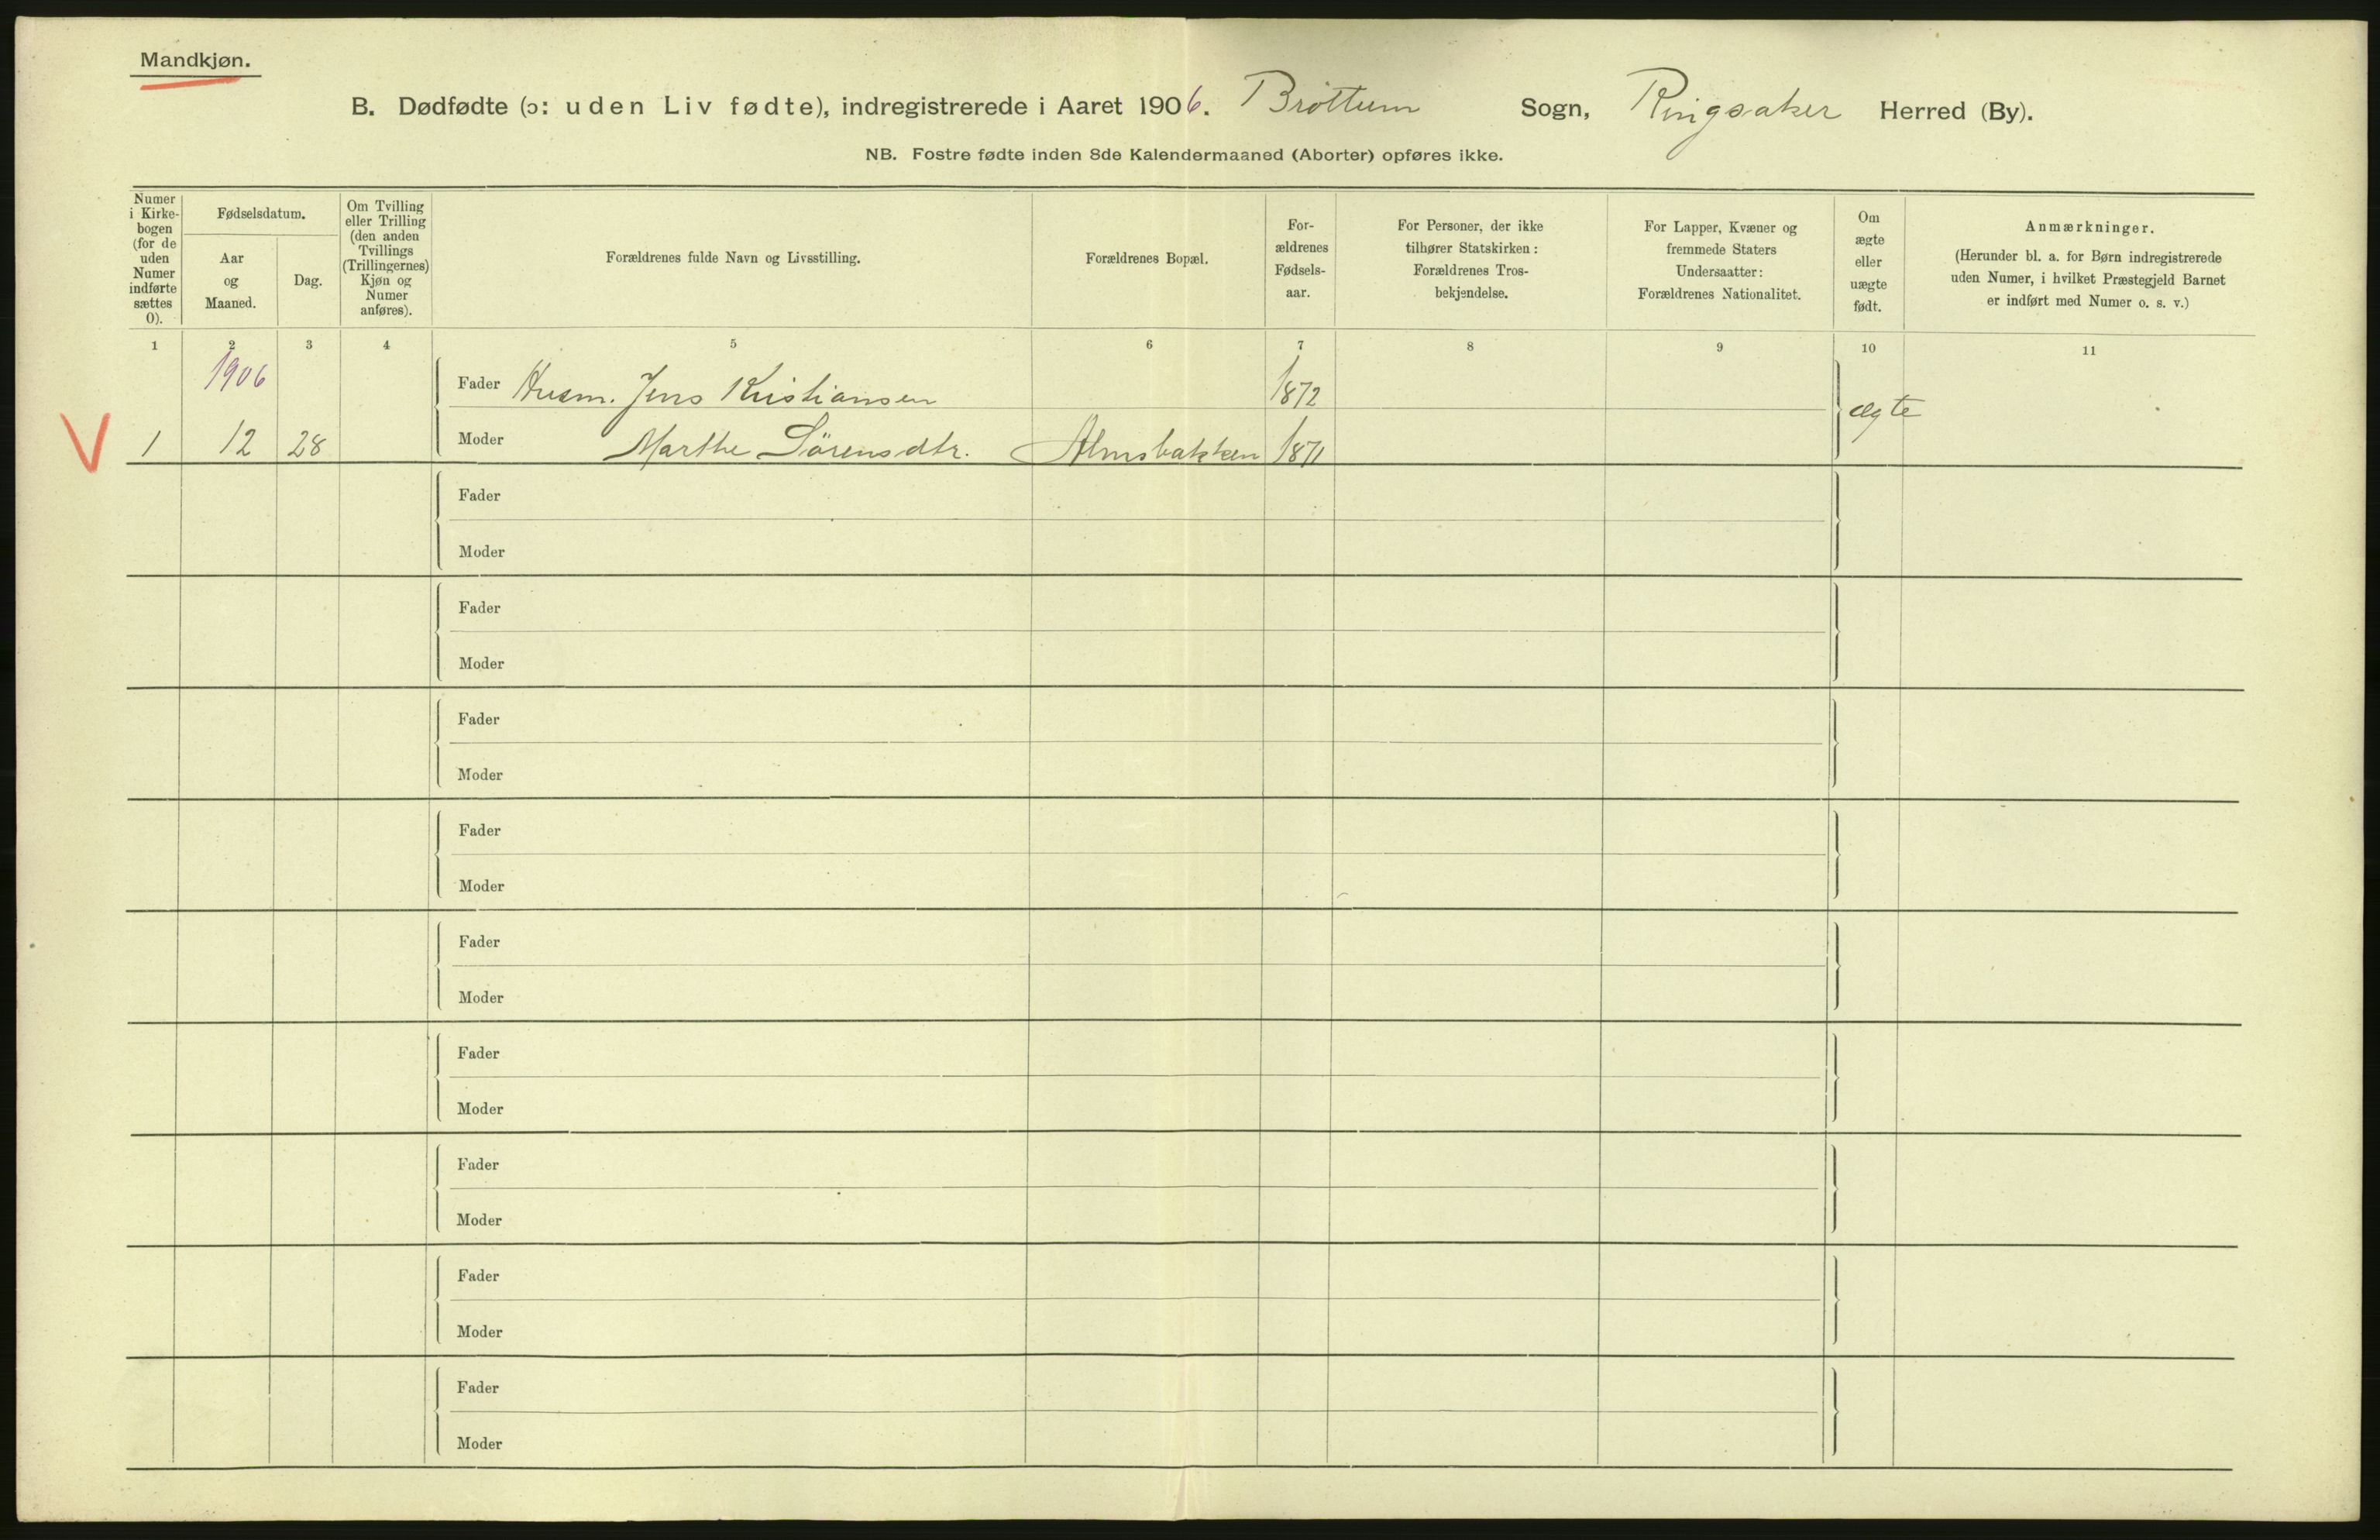 Mandkjøn.
B. Dødfødte (ɔ: uden Liv fødte), indregistrerede i Aaret 1906. Bröttum Sogn, Ringsaker Herred (By).
NB. Fostre fødte inden 8de Kalendermaaned (Aborter) opføres ikke.
Numer i Kirkebogen (for de uden Numer indførte sættes 0).
Fødselsdatum.
Aar og Maaned.
Dag.
Om Tvilling eller Trilling (den anden Tvillings (Trillingernes) Kjøn og Numer anføres).
Forældrenes fulde Navn og Livsstilling.
Forældrenes Bopæl.
For-
ældrenes
Fødsels-
aar.
For Personer, der ikke
tilhører Statskirken:
Forældrenes Tros-
bekjendelse.
For Lapper, Kvæner og
fremmede Staters
Undersaatter:
Forældrenes Nationalitet.
Om
ægte
eller
uægte
født.
Anmærkninger.
(Herunder bl. a. for Børn indregistrerede
uden Numer, i hvilket Præstegjeld Barnet
er indført med Numer o. s. v.)
1 2 3 4 5 6 7 8 9 10 11
1906 Fader Husm. Jens Kristiansen 1872 ægte
V 1 12 28 Moder Marthe Sörensdtr. Almsbakken 1871
Fader
Moder
Fader
Moder
Fader
Moder
Fader
Moder
Fader
Moder
Fader
Moder
Fader
Moder
Fader
Moder
Fader
Moder